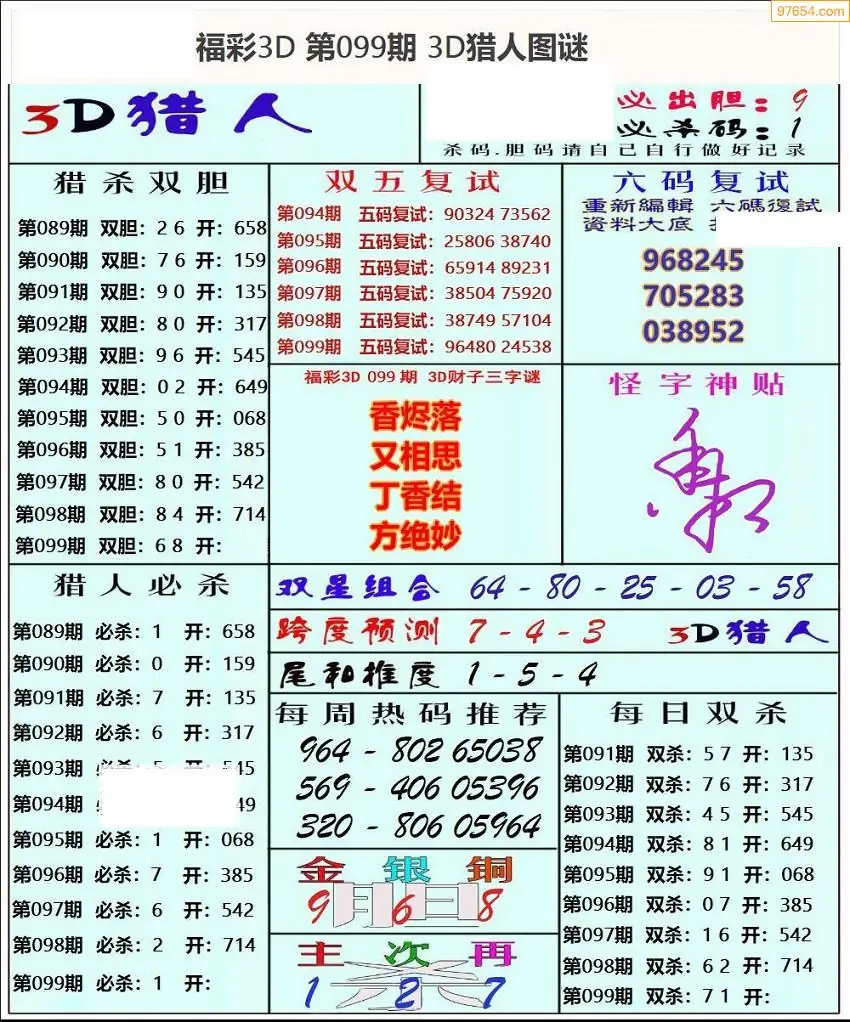 97654.com
福彩3D 第099期 3D猎人图谜
3D猎人
必出胆：9
必杀码：1
杀码.胆码请自己自行做好记录
猎杀双胆
第089期 双胆：26 开：658
第090期 双胆：76 开：159
第091期 双胆：90 开：135
第092期 双胆：80 开：317
第093期 双胆：96 开：545
第094期 双胆：02 开：649
第095期 双胆：50 开：068
第096期 双胆：51 开：385
第097期 双胆：80 开：542
第098期 双胆：84 开：714
第099期 双胆：68 开：
双五复试
第094期 五码复试：90324 73562
第095期 五码复试：25806 38740
第096期 五码复试：65914 89231
第097期 五码复试：38504 75920
第098期 五码复试：38749 57104
第099期 五码复试：96480 24538
六码复试
重新編輯 六碼復試
資料大底
968245
705283
038952
福彩3D 099期 3D财子三字谜
香烬落
又相思
丁香结
方绝妙
怪字神贴
猎人必杀
第089期 必杀：1 开：658
第090期 必杀：0 开：159
第091期 必杀：7 开：135
第092期 必杀：6 开：317
第093期 必杀：5 开：545
第094期 49
第095期 必杀：1 开：068
第096期 必杀：7 开：385
第097期 必杀：6 开：542
第098期 必杀：2 开：714
第099期 必杀：1 开：
双星组合 64-80-25-03-58
跨度预测 7-4-3 3D猎人
尾和推度 1-5-4
每周热码推荐
964-802 65038
569-406 05396
320-806 05964
金银铜
月日
9 6 8
主次再
杀
1 2 7
每日双杀
第091期 双杀：57 开：135
第092期 双杀：76 开：317
第093期 双杀：45 开：545
第094期 双杀：81 开：649
第095期 双杀：91 开：068
第096期 双杀：07 开：385
第097期 双杀：16 开：542
第098期 双杀：62 开：714
第099期 双杀：71 开：